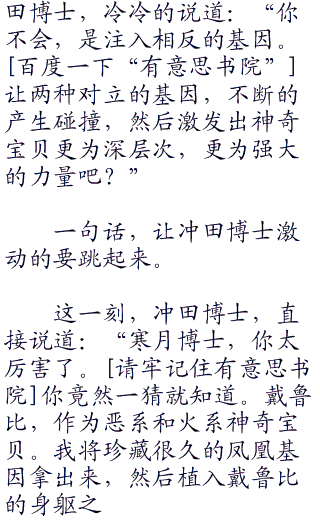 田博士，冷冷的说道：“你
不会，是注入相反的基因。
[百度一下“有意思书院”]
让两种对立的基因，不断的
产生碰撞，然后激发出神奇
宝贝更为深层次，更为强大
的力量吧？”
一句话，让冲田博士激
动的要跳起来。
这一刻，冲田博士，直
接说道：“寒月博士，你太
厉害了。[请牢记住有意思书
院]你竟然一猜就知道。戴鲁
比，作为恶系和火系神奇宝
贝。我将珍藏很久的凤凰基
因拿出来，然后植入戴鲁比
的身躯之